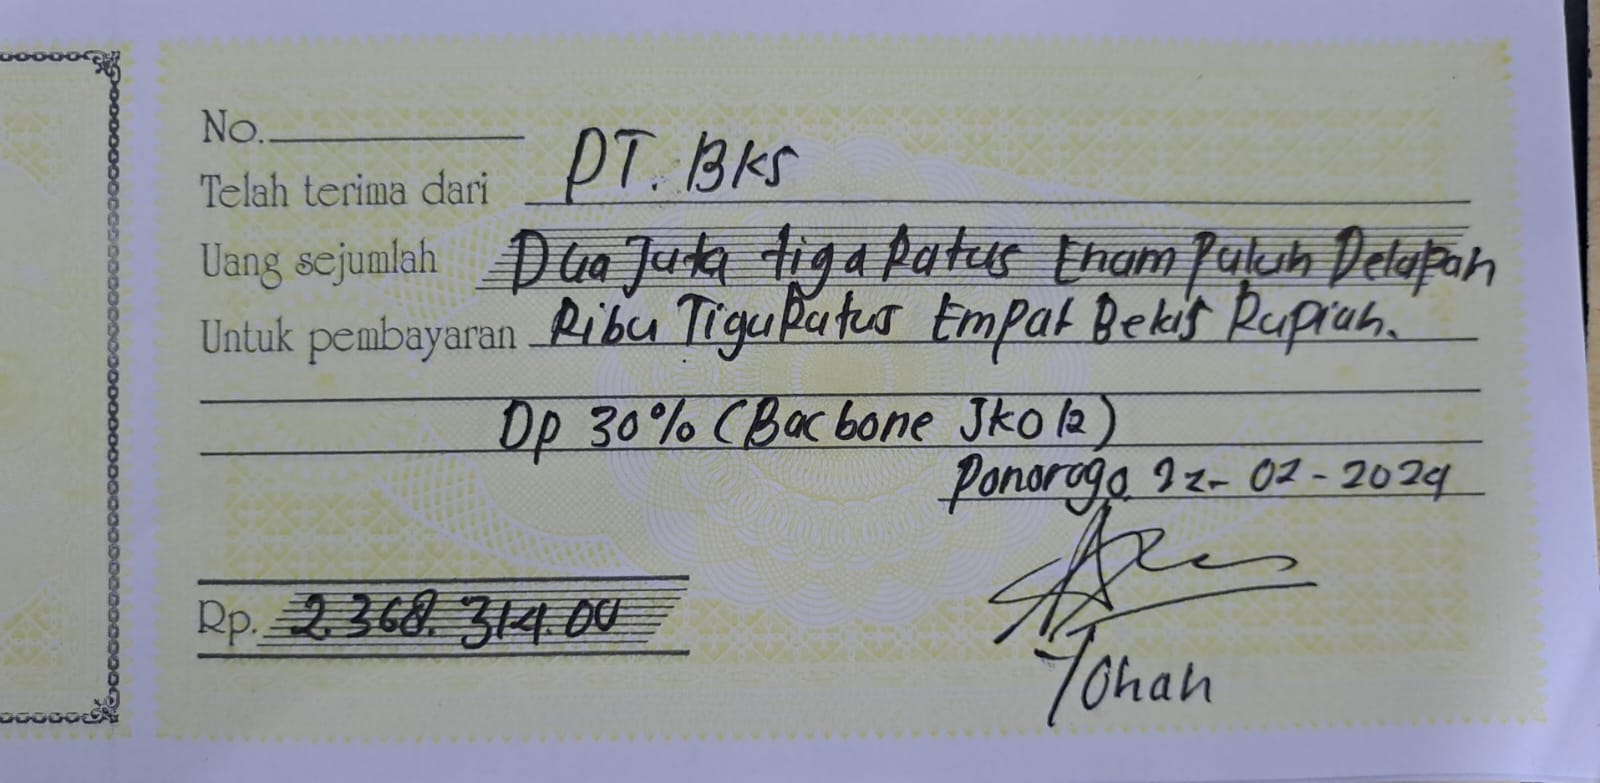 No.
Telah terima dari PT. BKS
Uang sejumlah Dua Juta tiga Ratus Enam Puluh Delapan
Untuk pembayaran Ribu Tiga Ratus Empat Belas Rupiah.
Dp 30% (Bacbone
Ponorogo 22-02-2024
Rp. 2.368.314.00
Yohan